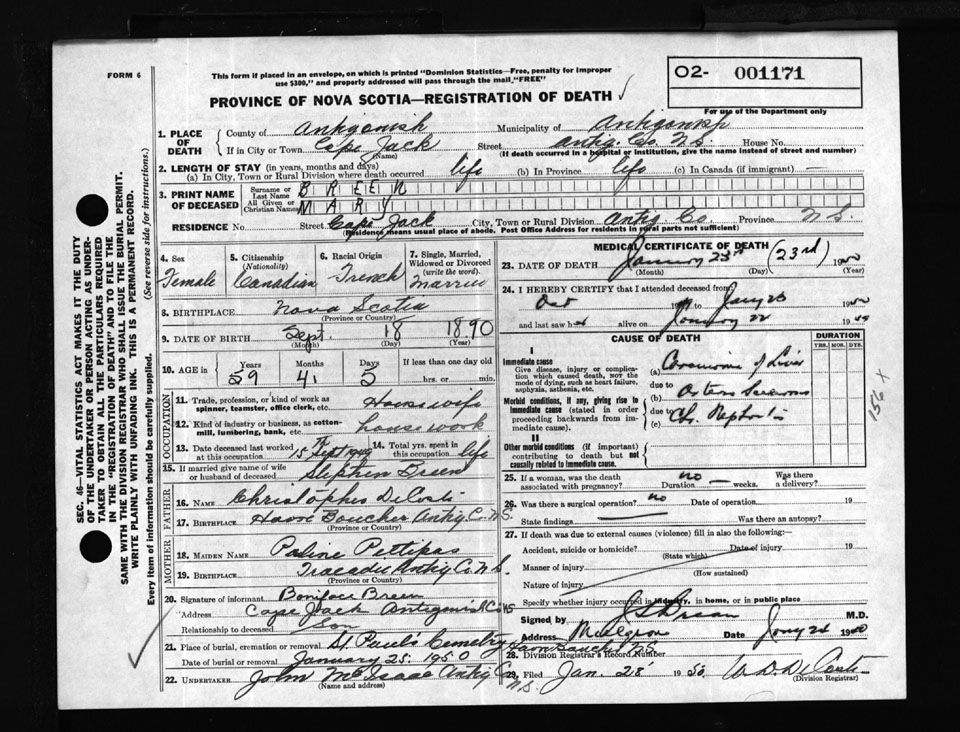 FORM 6
This form if placed in an envelope, on which is printed "Dominion Statistics—Free, penalty for improper
use $300," and properly addressed will pass through the mail, "FREE"
PROVINCE OF NOVA SCOTIA—REGISTRATION OF DEATH
O2- 001171
For use of the Department only
SEC. 46—VITAL STATISTICS ACT MAKES IT THE DUTY
OF THE UNDERTAKER OR PERSON ACTING AS UNDER-
TAKER TO OBTAIN ALL THE PARTICULARS REQUIRED
IN THE "REGISTRATION OF DEATH" AND TO FILE THE
SAME WITH THE DIVISION REGISTRAR WHO SHALL ISSUE THE BURIAL PERMIT.
WRITE PLAINLY WITH UNFADING INK. THIS IS A PERMANENT RECORD.
Every item of information should be carefully supplied. (See reverse side for instructions.)
1. PLACE OF DEATH
County of Antigonish Municipality of Antigonish
If in City or Town Cape Jack (Name) Street Antig. Co. N.S. House No.
(If death occurred in a hospital or institution, give the name instead of street and number)
2. LENGTH OF STAY (in years, months and days)
(a) In City, Town or Rural Division where death occurred life (b) In Province life (c) In Canada (if immigrant)
3. PRINT NAME OF DECEASED
Surname or Last Name BREEN
All Given or Christian Names MARY
RESIDENCE No. Street Cape Jack City, Town or Rural Division Antig. Co. Province N.S.
(Residence means usual place of abode. Post Office Address for residents in rural parts not sufficient)
4. Sex Female
5. Citizenship (Nationality) Canadian
6. Racial Origin French
7. Single, Married, Widowed or Divorced (write the word) Married
8. BIRTHPLACE Nova Scotia
(Province or Country)
9. DATE OF BIRTH Sept. 18 1890
(Month) (Day) (Year)
10. AGE in Years Months Days If less than one day old
59 4 5 hrs. or min.
OCCUPATION
11. Trade, profession, or kind of work as
spinner, teamster, office clerk, etc. Housewife
12. Kind of industry or business, as cotton-
mill, lumbering, bank, etc. housework
13. Date deceased last worked
at this occupation 15 Sept 1949
14. Total yrs. spent in
this occupation life
15. If married give name of wife
or husband of deceased Stephen Breen
FATHER
16. NAME Christopher DeCoste
17. BIRTHPLACE Havre Boucher Antig. Co. N.S.
(Province or Country)
MOTHER
18. MAIDEN NAME Pettipas
19. BIRTHPLACE Tracadie Antig Co. N.S.
(Province or Country)
20. Signature of informant Boniface Breen
Address Cape Jack Antigonish Co NS
Relationship to deceased Son
21. Place of burial, cremation or removal St. Paul's Cemetery Havre Boucher N.S.
Date of burial or removal January 25. 1950
22. UNDERTAKER John McIsaac Antig Co. N.S.
(Name and address)
MEDICAL CERTIFICATE OF DEATH
23. DATE OF DEATH January 23rd (23rd) 1950
(Month) (Day) (Year)
24. I HEREBY CERTIFY that I attended deceased from
Oct to Jany 23 1950
and last saw her alive on January 22 19
CAUSE OF DEATH
DURATION
YRS. MOS. DYS.
I
Immediate cause
Give disease, injury or complica-
tion which caused death, not the
mode of dying, such as heart failure,
asphyxia, asthenia, etc.
(a) Carcinoma of Liver
due to
Morbid conditions, if any, giving rise to
immediate cause (stated in order
proceeding backwards from im-
mediate cause).
(b)
due to
(c) Ch. Nephritis
156 x
II
Other morbid conditions (if important)
contributing to death but not
causally related to immediate cause.
25. If a woman, was the death
associated with pregnancy? no Duration — weeks. Was there a delivery?
26. Was there a surgical operation? no Date of operation 19
State findings Was there an autopsy?
27. If death was due to external causes (violence) fill in also the following:
Accident, suicide or homicide? (State which) Date of injury 19
Manner of injury
(How sustained)
Nature of injury
Specify whether injury occurred in industry, in home, or in public place
Signed by M.D.
Address Mulgrave Date Jany 24 1950
28. Division Registrar's Record Number
29. Filed Jan. 28 1950 W.D. DeCoste
(Division Registrar)